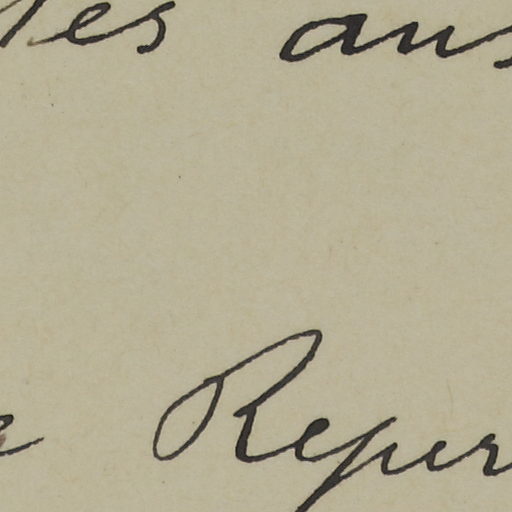 tes aus
e Reper